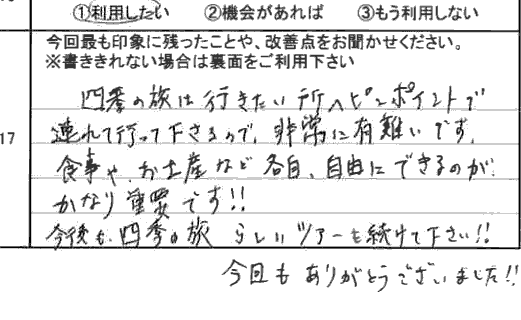 ①利用したい ②機会があれば ③もう利用しない
今回最も印象に残ったことや、改善点をお聞かせください。
※書ききれない場合は裏面をご利用下さい
17
四季の旅は行きたい所へピンポイントで
連れて行って下さるので、非常に有難いです。
食事や、お土産など各自、自由にできるのが、
かなり重要です!!
今後も、四季の旅らしいツアーを続けて下さい!!
今回もありがとうございました!!